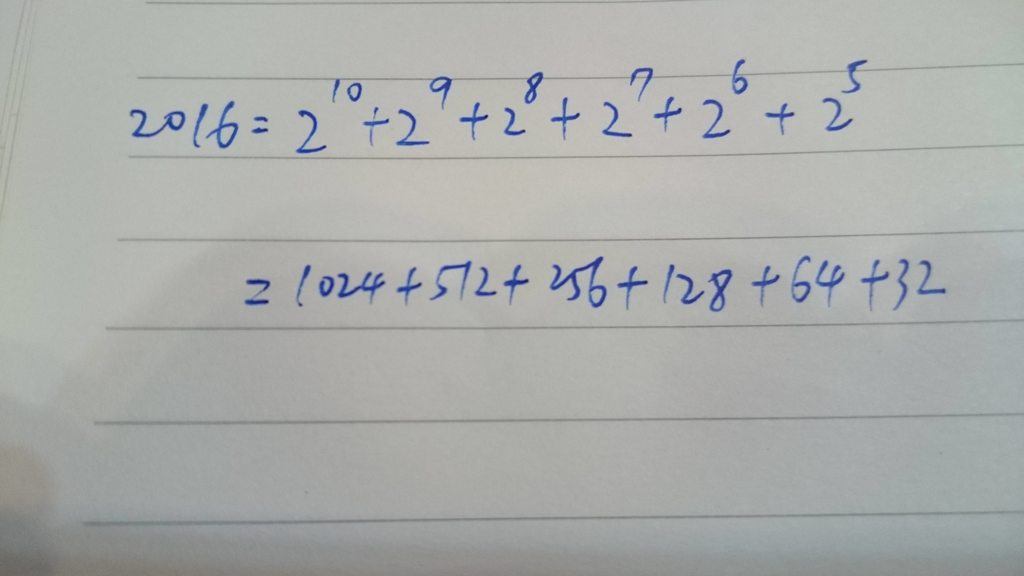 2016 = 2¹⁰ + 2⁹ + 2⁸ + 2⁷ + 2⁶ + 2⁵
= 1024 + 512 + 256 + 128 + 64 + 32